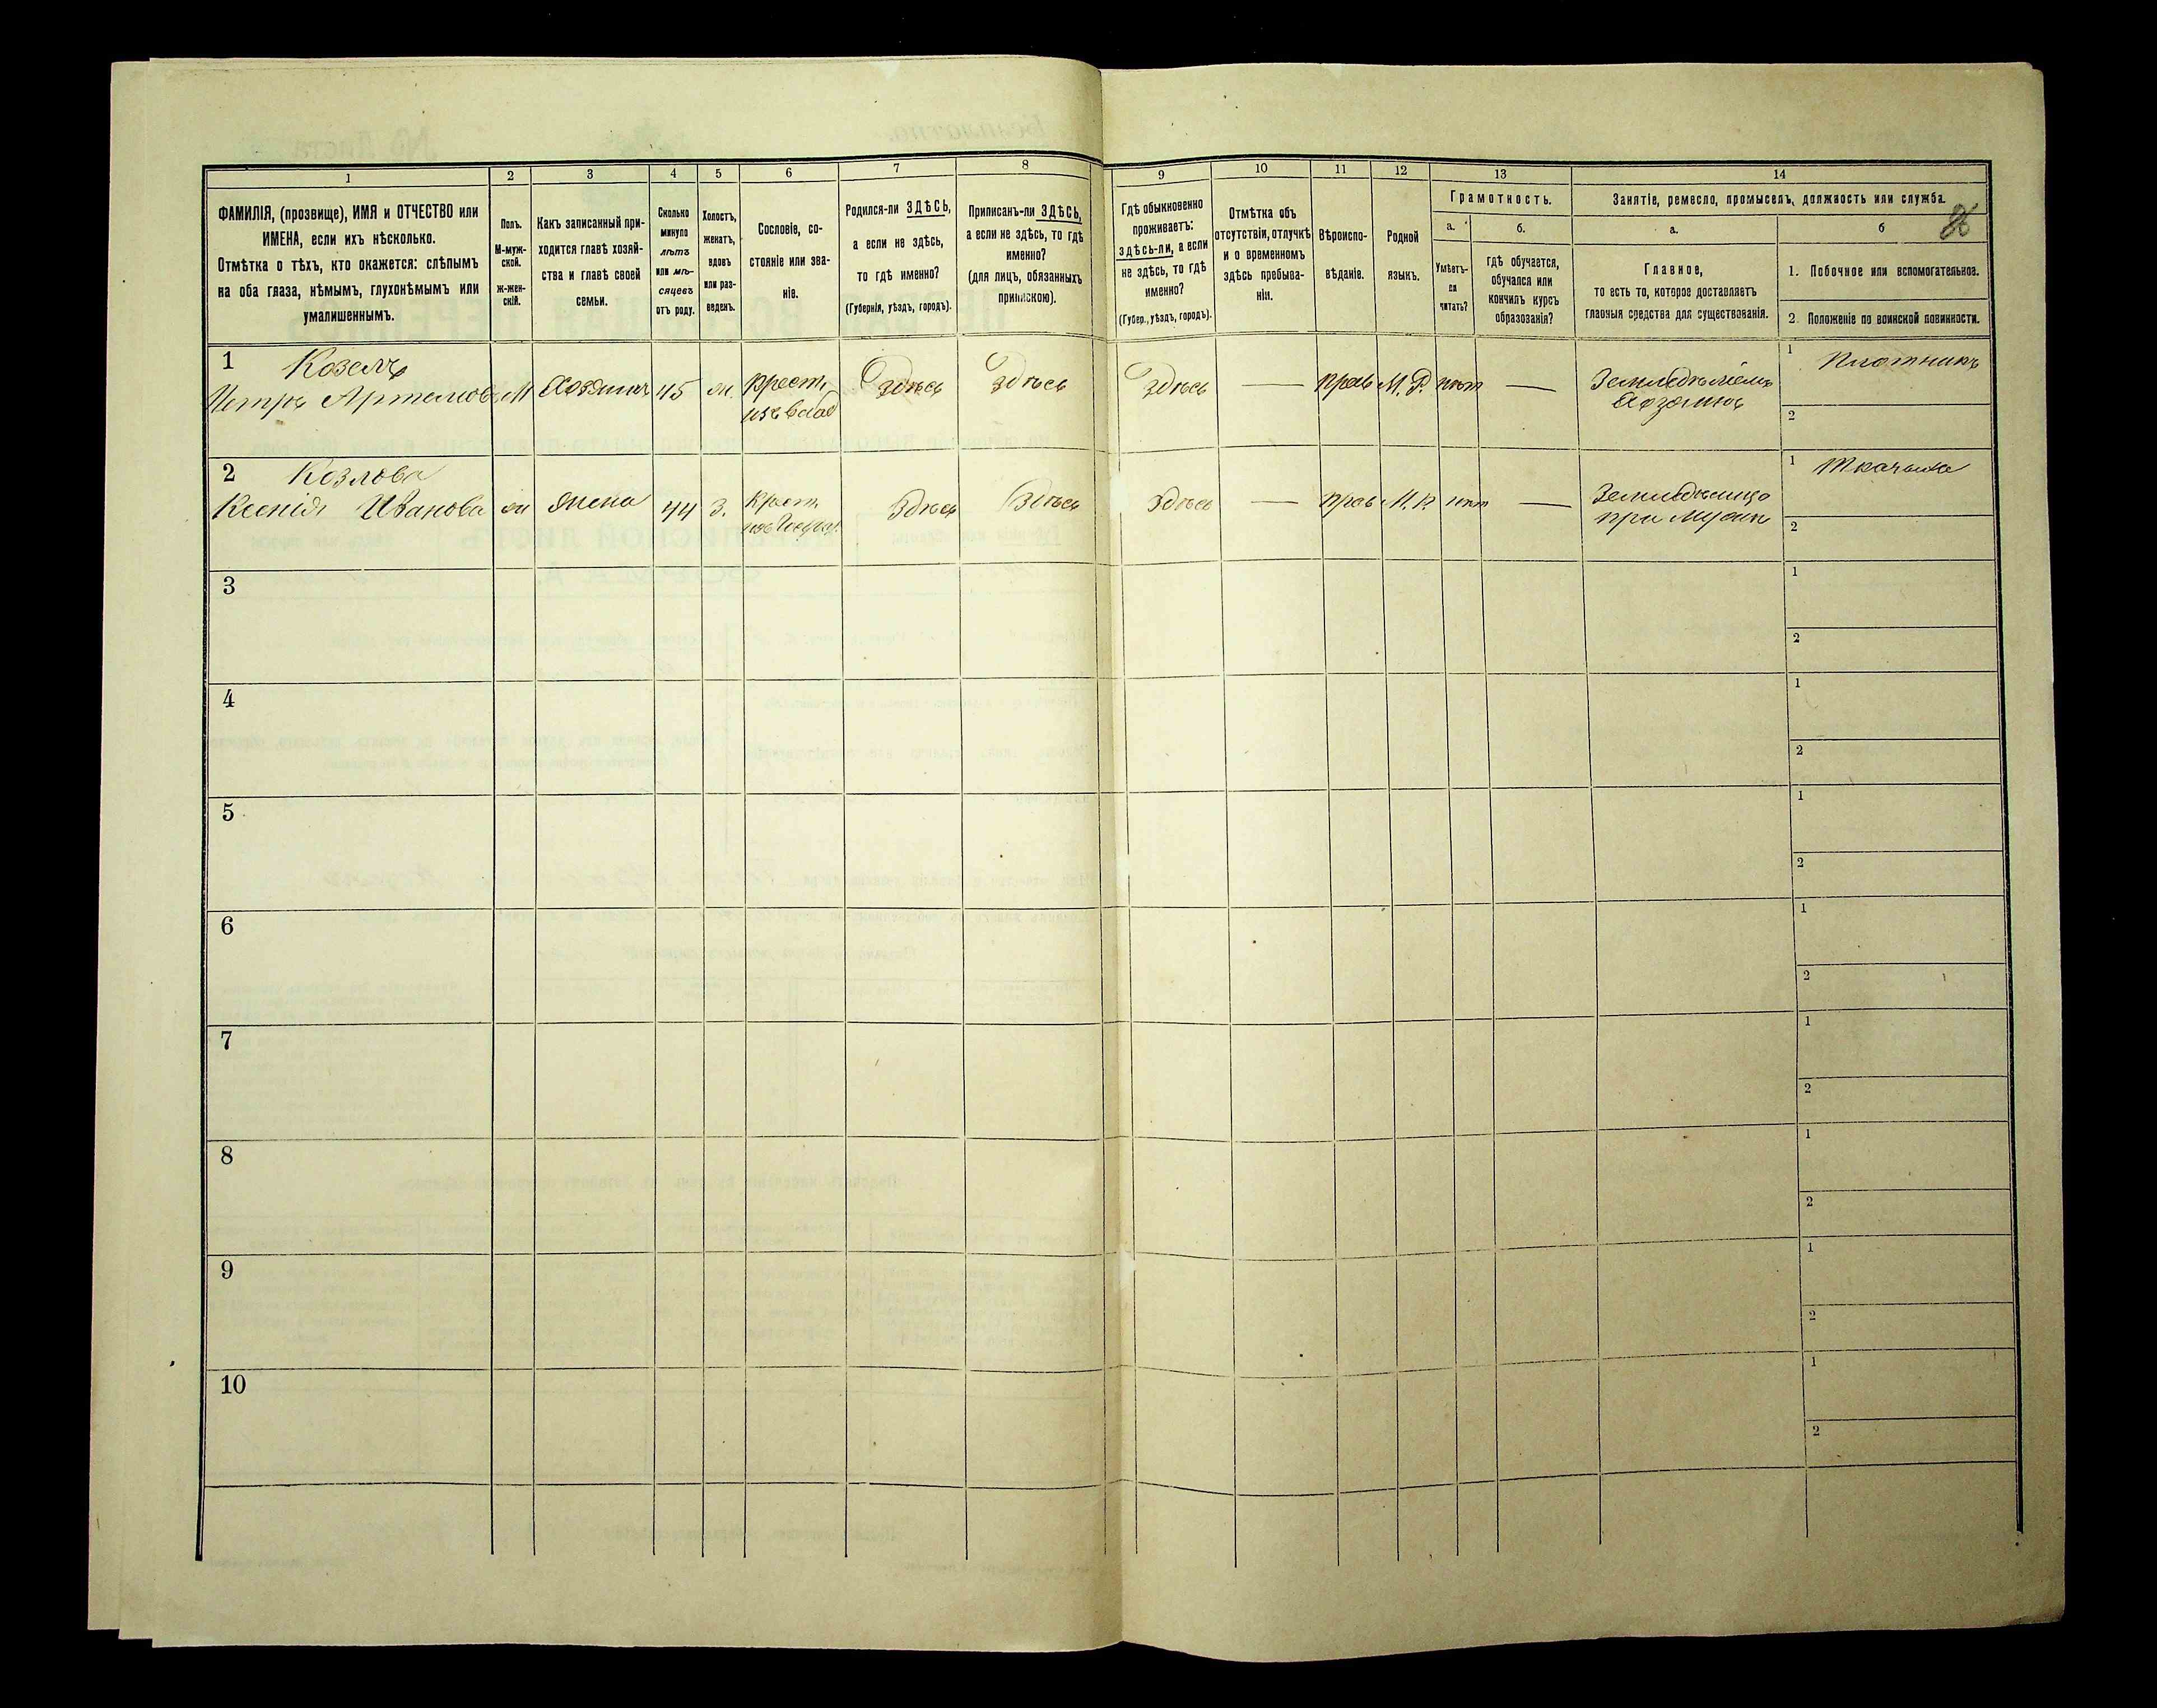 1 2 3 4 5 6 7 8 9 10 11 12 13 14
ФАМИЛІЯ, (прозвище), ИМЯ и ОТЧЕСТВО или
ИМЕНА, если ихъ нѣсколько.
Отмѣтка о тѣхъ, кто окажется: слѣпымъ
на оба глаза, нѣмымъ, глухонѣмымъ или
умалишеннымъ.
Полъ.
М-муж-
ской.
ж-жен-
скій.
Какъ записанный при-
ходится главѣ хозяй-
ства и главѣ своей
семьи.
Сколько
минуло
лѣтъ
или мѣ-
сяцевъ
отъ роду.
Холостъ,
женатъ,
вдовъ
или раз-
веденъ.
Сословіе, со-
стояніе или зва-
ніе.
Родился-ли ЗДѢСЬ,
а если не здѣсь,
то гдѣ именно?
(Губернія, уѣздъ, городъ).
Приписанъ-ли ЗДѢСЬ,
а если не здѣсь, то гдѣ
именно?
(для лицъ, обязанныхъ
припискою).
Гдѣ обыкновенно
проживаетъ:
здѣсь-ли, а если
не здѣсь, то гдѣ
именно?
(Губер., уѣздъ, городъ).
Отмѣтка объ
отсутствіи, отлучкѣ
и о временномъ
здѣсь пребыва-
ніи.
Вѣроиспо-
вѣданіе.
Родной
языкъ.
Грамотность.
а.
Умѣетъ-
ли
читать?
б.
гдѣ обучается,
обучался или
кончилъ курсъ
образованія?
Занятіе, ремесло, промыселъ, должность или служба.
а.
Главное,
то есть то, которое доставляетъ
главныя средства для существованія.
б
1. Побочное или вспомогательное.
2. Положеніе по воинской повинности.
1 Козелъ
Петръ Артемовъ М Хозяинъ 45 ж. крест. Здѣсь Здѣсь Здѣсь — прав М.Р. нѣт — Земледѣлецъ
Хозяинъ
1 Плотникъ
2
2 Козлова
Ксенія Иванова ж жена 44 З. крест. Здѣсь Здѣсь Здѣсь — прав М.Р. нѣт —
при мужѣ
1 Ткачиха
2
3
1
2
4
1
2
5
1
2
6
1
2
7
1
2
8
1
2
9
1
2
10
1
2